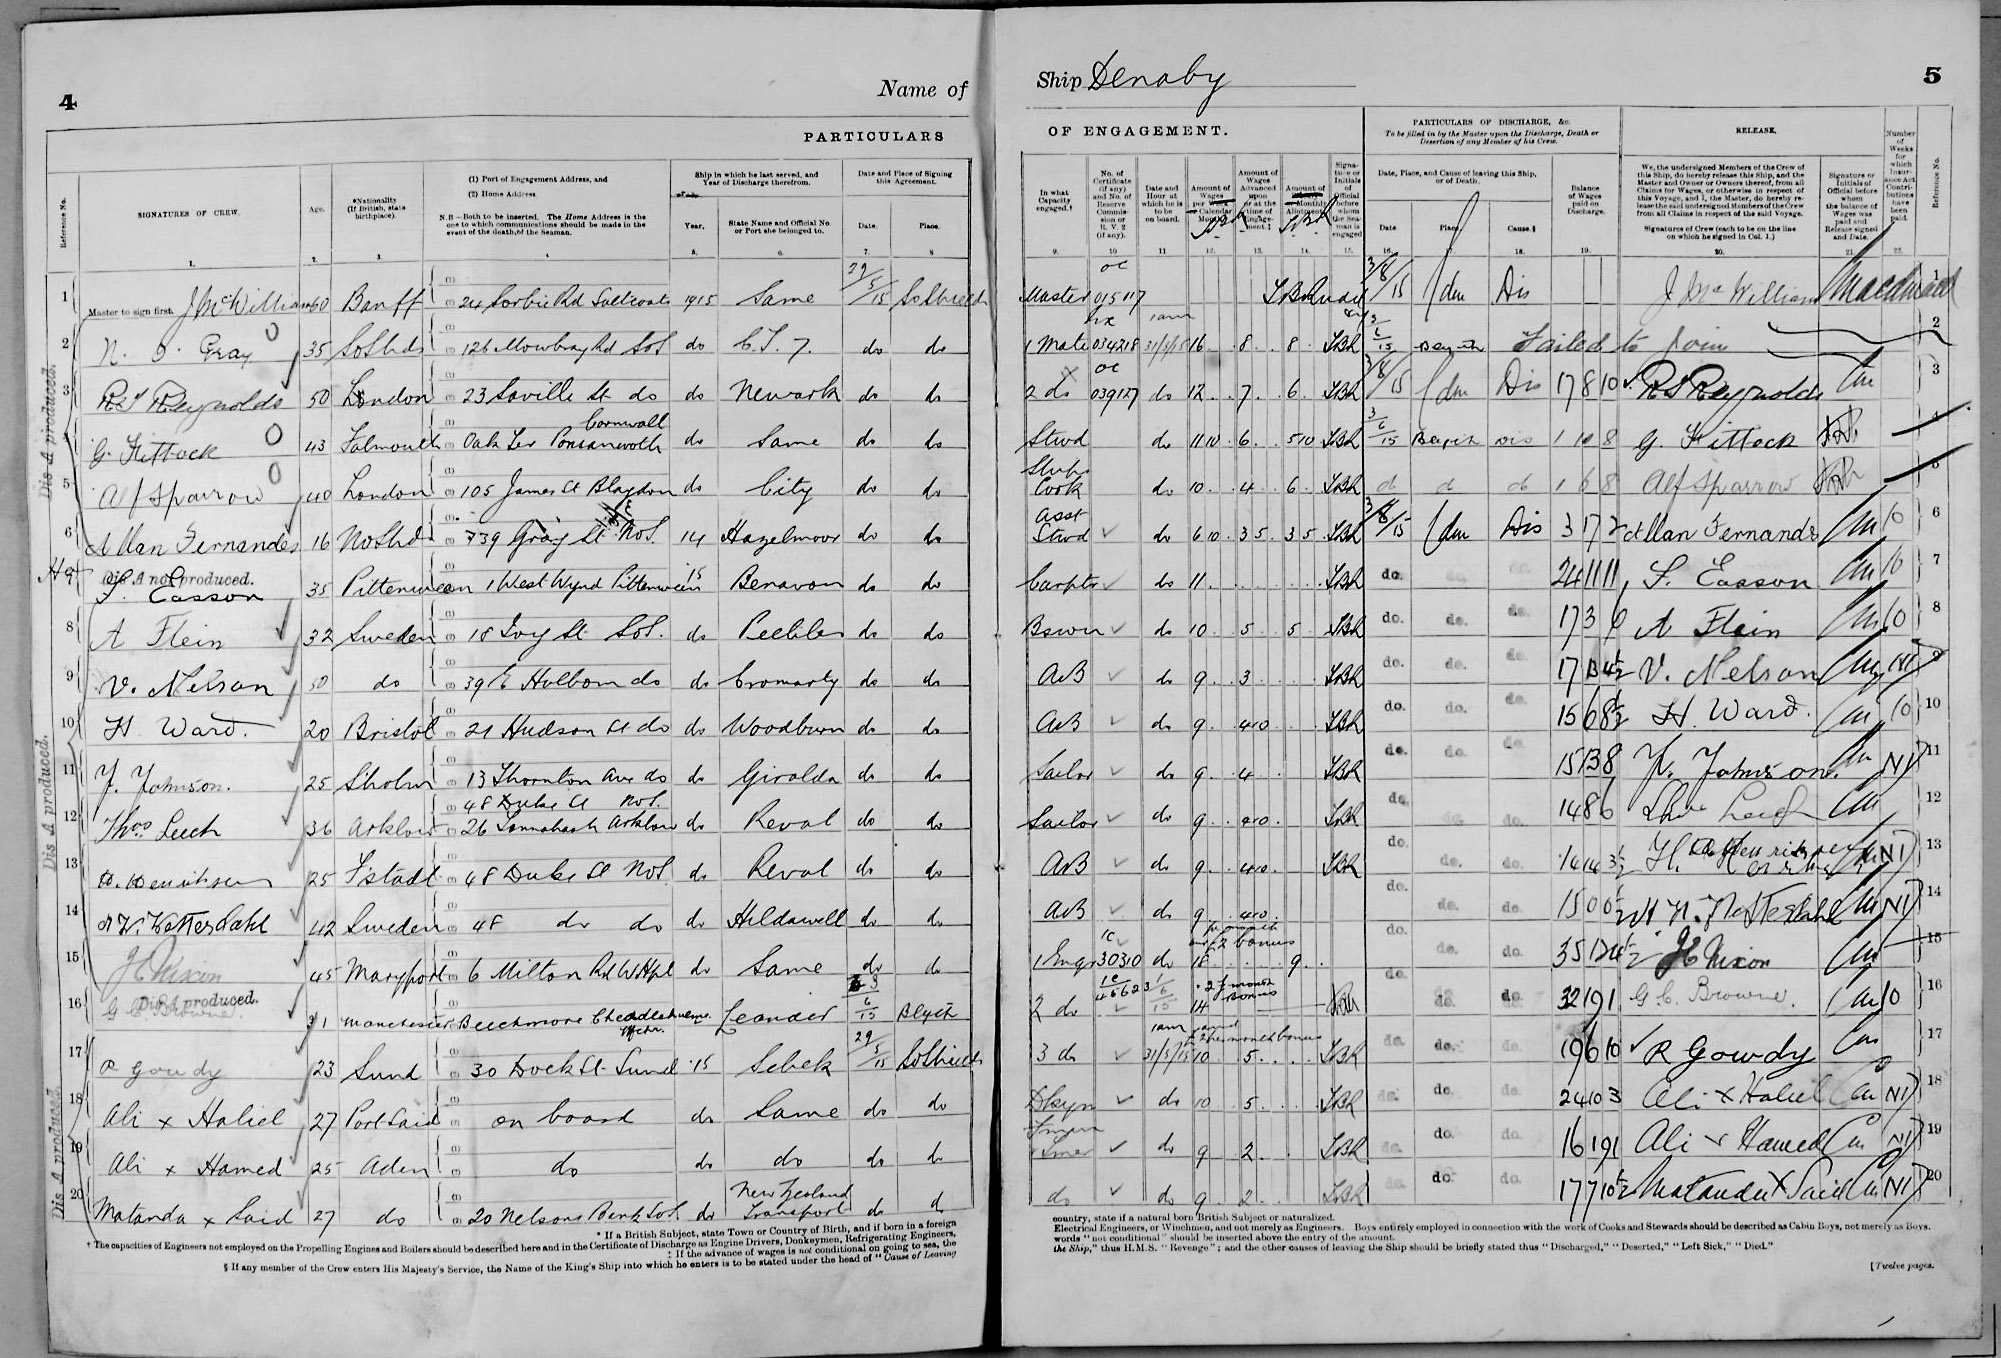 4
Name of
PARTICULARS
Reference No.
SIGNATURES OF CREW.
Age.
*Nationality (If British, state birthplace).
(1) Port of Engagement Address, and
(2) Home Address
N.B—Both to be inserted. The Home Address is the one to which communications should be made in the event of the death, of the Seaman.
Ship in which he last served, and Year of Discharge therefrom.
Year.
State Name and Official No. or Port she belonged to.
Date and Place of Signing this Agreement.
Date.
Place.
1. 2. 3. 4 5. 6. 7. 8
1 Master to sign first. J McWilliam 60 Banff 24 Sorbie Rd Saltcoats 1915 Same 29/5/15 So Shields
2 N. J. Gray 35 So Shds 126 Mowbray Rd SoS do do do
3 R S Reynolds 50 London 23 Saville St do do Newark do do
4 G. Kittock 43 Falmouth Oak Ter Ponsanooth Cornwall do Same do do
5 Alf Sparrow 40 London 105 James St Blaydon do City do do
6 Allan Fernandes 16 No Shds 39 Gray St NoS. 14 Hazelmoor do do
7 Dis. A not produced.
Easson 35 Pittenweem 1 West Wynd Pittenweem 15 Benavon do do
8 A Flein 32 Sweden 18 Ivy St SoS. do Peebles do do
9 V. Nelson 50 do 39 E Holborn do do Cromarty do do
10 H. Ward. 20 Bristol 21 Hudson St do do Woodburn do do
11 Y. Johnson. 25 Sholm 13 Thornton Ave do do Giralda do do
12 Thos Leech 36 Arklow 48 Duke St NoS.
26 Arklow do Reval do do
13 H. Henriksen 25 Fstadt 48 Duke St NoS. do Reval do do
14 42 Sweden 48 do do do Hildawell do do
15 J E Nixon 45 Maryport 6 Milton Rd W Hpl do Same do do
16 Dis. A produced.
G C Browne. 31 Manchester Beechmore Cheadle Hulme Leander 3/6/15 Blyth
17 R Gowdy 23 Sund 30 Dock St Sund 15 Sebek 29/5/15 So Shields
18 Ali x Haliel 27 Port Said on board do Same do do
19 Ali x Hamed 25 Aden do do do do do
20 Matanda x Said 27 do 20 Nelsons Bank SoS do New Zealand Transport do do
Dis A produced.
Dis A produced.
Dis A produced.
* If a British Subject, state Town or Country of Birth, and if born in a foreign
† The capacities of Engineers not employed on the Propelling Engines and Boilers should be described here and in the Certificate of Discharge as Engine Drivers, Donkeymen, Refrigerating Engineers,
‡ If the advance of wages is not conditional on going to sea, the
§ If any member of the Crew enters His Majesty's Service, the Name of the King's Ship into which he enters is to be stated under the head of "Cause of Leaving
Ship Denaby
5
OF ENGAGEMENT.
PARTICULARS OF DISCHARGE, &c.
To be filled in by the Master upon the Discharge, Death or Desertion of any Member of his Crew.
RELEASE.
Number of Weeks for which Insurance Act Contributions have been paid.
Reference No.
In what Capacity engaged.†
No. of Certificate (if any) and No. of Reserve Commission or R.V. 2 (if any).
Date and Hour at which he is to be on board.
Amount of Wages per Week or Calendar Month
Amount of Wages Advanced upon or at the time of Engagement.‡
Amount of Monthly Allotment
Signature or Initials of Official before whom the Seaman is engaged
Date, Place, and Cause of leaving this Ship, or of Death.
Date
Place
Cause.§
Balance of Wages paid on Discharge.
We, the undersigned Members of the Crew of this Ship, do hereby release this Ship, and the Master and Owner or Owners thereof, from all Claims for Wages, or otherwise in respect of this Voyage, and I, the Master, do hereby release the said undersigned Members of the Crew from all Claims in respect of the said Voyage.
Signatures of Crew (each to be on the line on which he signed in Col. 1.)
Signature or Initials of Official before whom the balance of Wages was paid and Release signed and Date.
9. 10 11 12. 13. 14 15. 16. 17. 18. 19. 20. 21. 22.
Master oc 015117 3/8/15 Ldn Dis J McWilliam 1
1 Mate 034218 1am 31/5/15 16 8 8 Blyth Failed to join 2
2 do oc 039127 do 12 7 6 3/8/15 Ldn Dis 17 8 10 R S Reynolds 3
Stwd do 11 10 6 5 10 3/6/15 Blyth Dis 1 10 8 G. Kittock 4
Ships Cook do 10 4 6 d d d 1 6 8 Alf Sparrow 5
Asst Stwd do 6 10 3 5 3 5 3/8/15 Ldn Dis 3 17 2 Allan Fernandes 10 6
Carptr do 11 do. do. do. 24 11 11 Easson 10 7
Bswn do 10 5 5 do. do. do. 17 3 6 A Flein 10 8
AB do 9 3 do. do. do. 17 13 4½ V. Nelson NI 9
AB do 9 4 10 do. do. do. 15 6 8½ H. Ward. 10 10
Sailor do 9 4 do. do. do. 15 13 8 Y. Johnson. NI 11
Sailor do 9 4 10 do. do. do. 14 8 6 12
AB do 9 4 10 do. do. do. 14 14 3½ H. Henriksen NI 13
AB do 9 4 10 do. do. do. 15 0 0½ NI 14
1 Engr 1c 30310 do 18 per month and £2 bonus 9 do. do. do. 35 12 4½ J E Nixon 15
2 do 1c 45623 1/6/15 14 £2 month bonus do. do. do. 32 19 1 G C Browne. 10 16
3 do 1am 31/5/15 10 and £2 per month bonus 5 do. do. do. 19 6 10 R Gowdy 17
Dkyn do 10 5 do. do. do. 24 10 3 Ali x Haliel NI 18
do 9 2 do. do. do. 16 19 1 Ali x Hamed NI 19
do do 9 2 do. do. 17 7 10½ Matanda x Said NI 20
country, state if a natural born British Subject or naturalized.
Electrical Engineers, or Winchmen, and not merely as Engineers. Boys entirely employed in connection with the work of Cooks and Stewards should be described as Cabin Boys, not merely as Boys.
words "not conditional" should be inserted above the entry of the amount.
the Ship," thus H.M.S. "Revenge"; and the other causes of leaving the Ship should be briefly stated thus "Discharged," "Deserted," "Left Sick," "Died."
[Twelve pages.